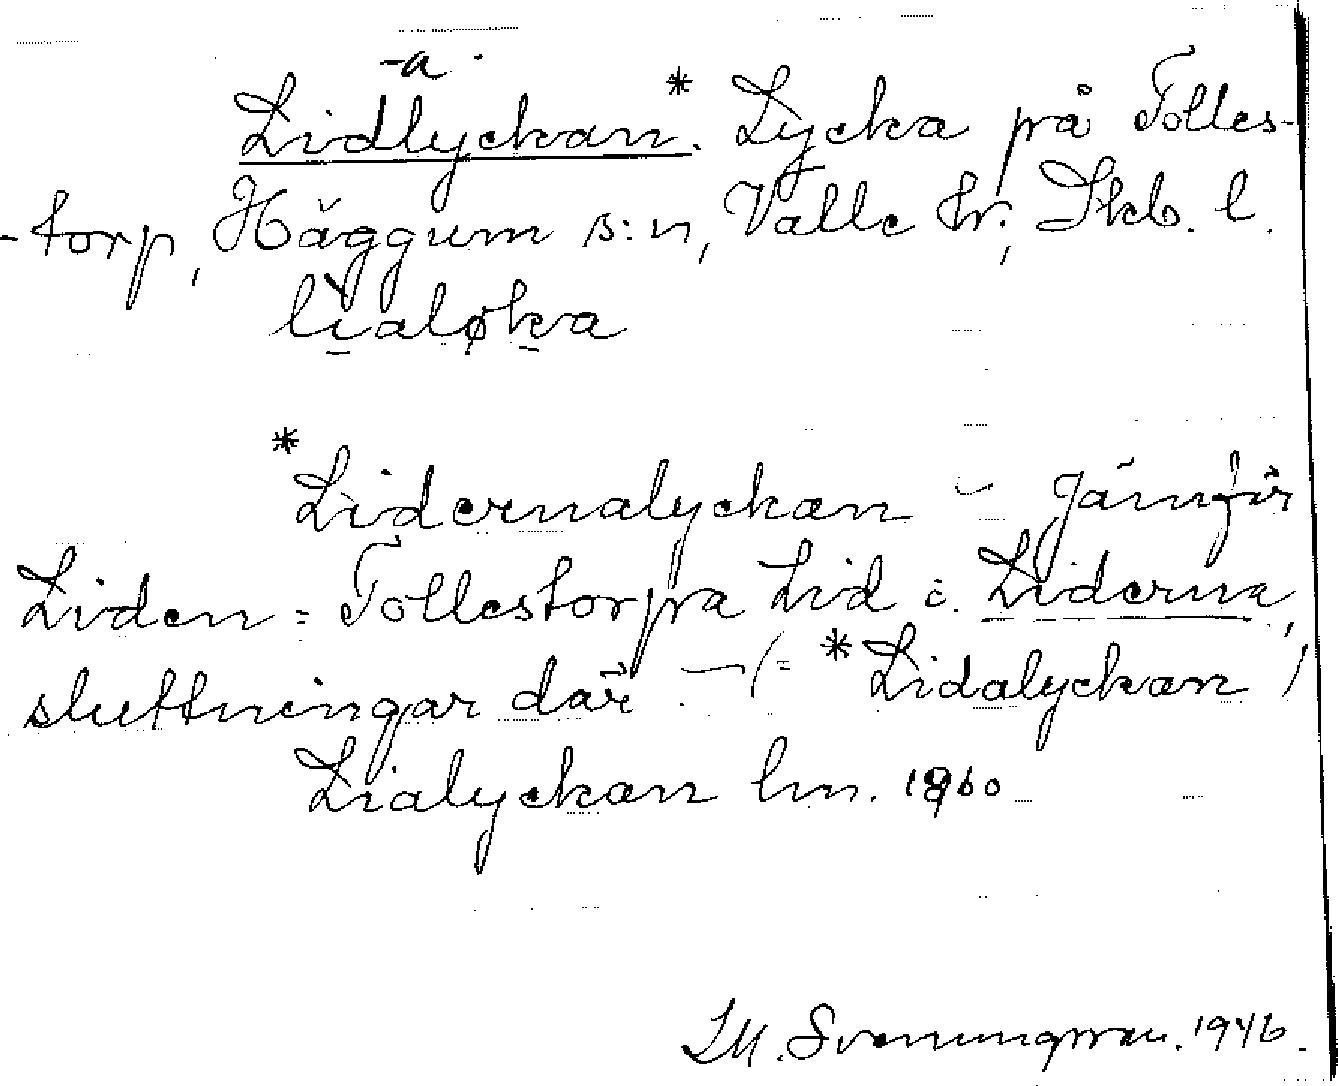 -a
Lidlyckan.* Lycka på Tolles-
-torp, Häggum s:n, Valle hr; Skb. l.
lialøka
*Lidernalyckan – Jämför
Liden = Tollestorpa Lid i. Liderna,
sluttningar där. – (= *Lidalyckan)
Lialyckan lm. 1960
Svenungsson. 1946.